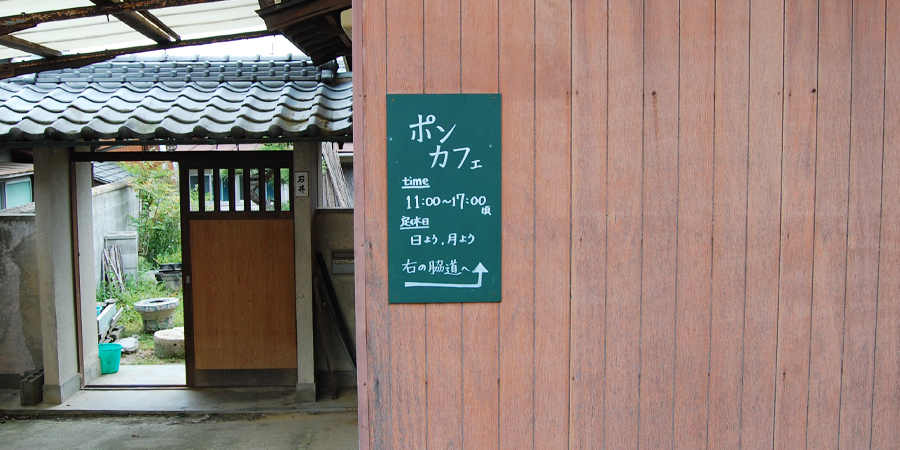 石井
ポン
カフェ
time
11:00~17:00頃
定休日
日よう,月よう
右の脇道へ